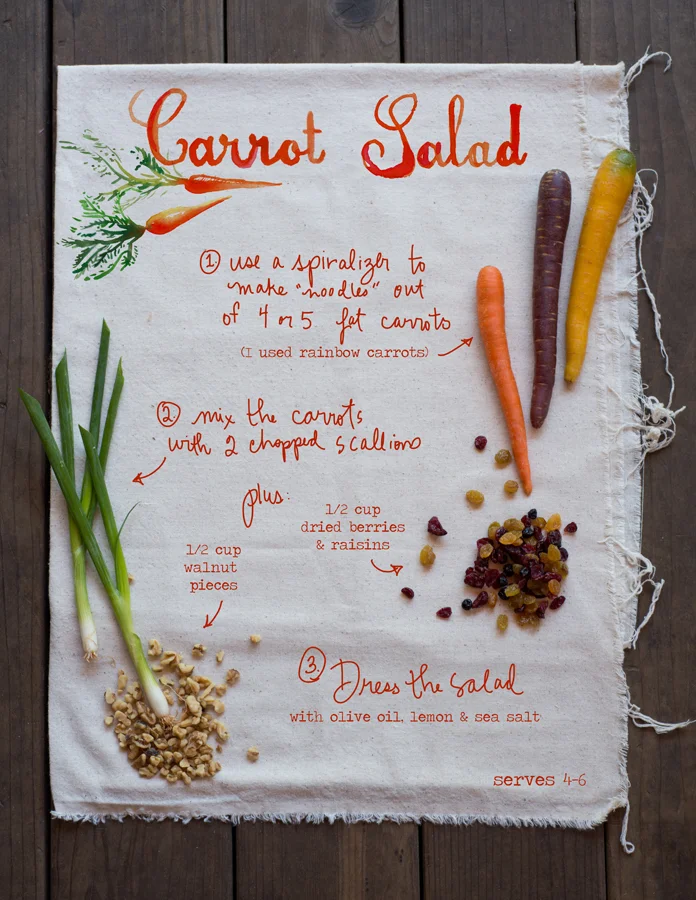 Carrot Salad
1 use a spiralizer to
make "noodles" out
of 4 or 5 fat carrots
(I used rainbow carrots)
2. mix the carrots
with 2 chopped scallions
plus:
1/2 cup
dried berries
& raisins
1/2 cup
walnut
pieces
3. Dress the salad
with olive oil, lemon & sea salt
serves 4-6